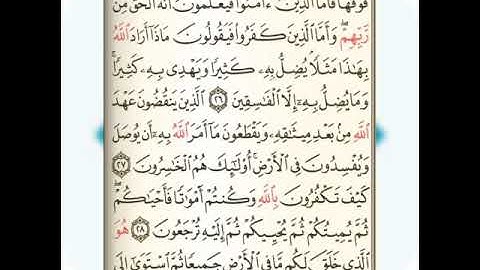 فَوْقَهَا فَأَمَّا الَّذِينَ ءَامَنُوا فَيَعْلَمُونَ أَنَّهُ الْحَقُّ مِن
رَّبِّهِمْ ۖ وَأَمَّا الَّذِينَ كَفَرُوا فَيَقُولُونَ مَاذَا أَرَادَ اللَّهُ
بِهَٰذَا مَثَلًا يُضِلُّ بِهِ كَثِيرًا وَيَهْدِي بِهِ كَثِيرًا ۚ
وَمَا يُضِلُّ بِهِ إِلَّا الْفَاسِقِينَ ٢٦ الَّذِينَ يَنقُضُونَ عَهْدَ
اللَّهِ مِنْ بَعْدِ مِيثَاقِهِ وَيَقْطَعُونَ مَا أَمَرَ اللَّهُ بِهِ أَن يُوصَلَ
وَيُفْسِدُونَ فِي الْأَرْضِ ۚ أُولَٰئِكَ هُمُ الْخَاسِرُونَ ٢٧
كَيْفَ تَكْفُرُونَ بِاللَّهِ وَكُنتُمْ أَمْوَاتًا فَأَحْيَاكُمْ ۖ
ثُمَّ يُمِيتُكُمْ ثُمَّ يُحْيِيكُمْ ثُمَّ إِلَيْهِ تُرْجَعُونَ ٢٨ هُوَ
الَّذِي خَلَقَ لَكُم مَّا فِي الْأَرْضِ جَمِيعًا ثُمَّ اسْتَوَىٰ إِلَى